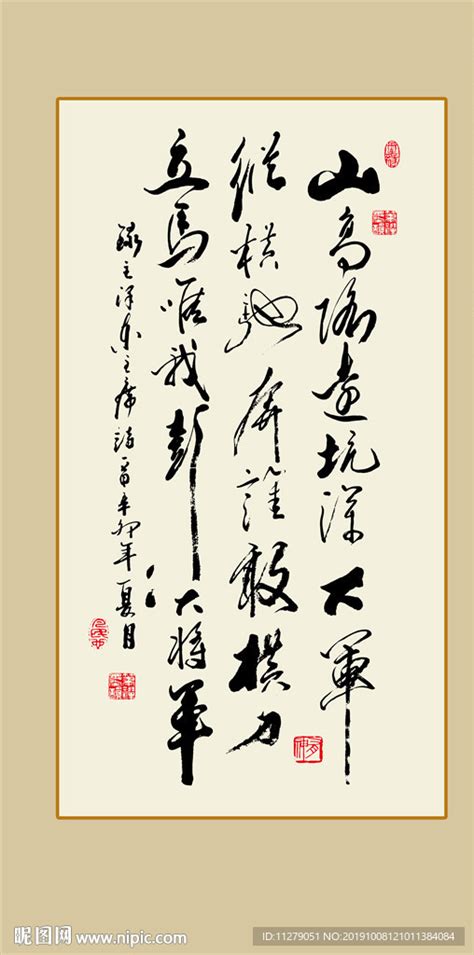 山高路遠坑深大軍
縱横馳奔誰敢横刀
立馬唯我彭大将軍
録毛澤東主席詩一首辛卯年夏月
昵图网 www.nipic.com
ID:11279051 NO:20191008121011384084